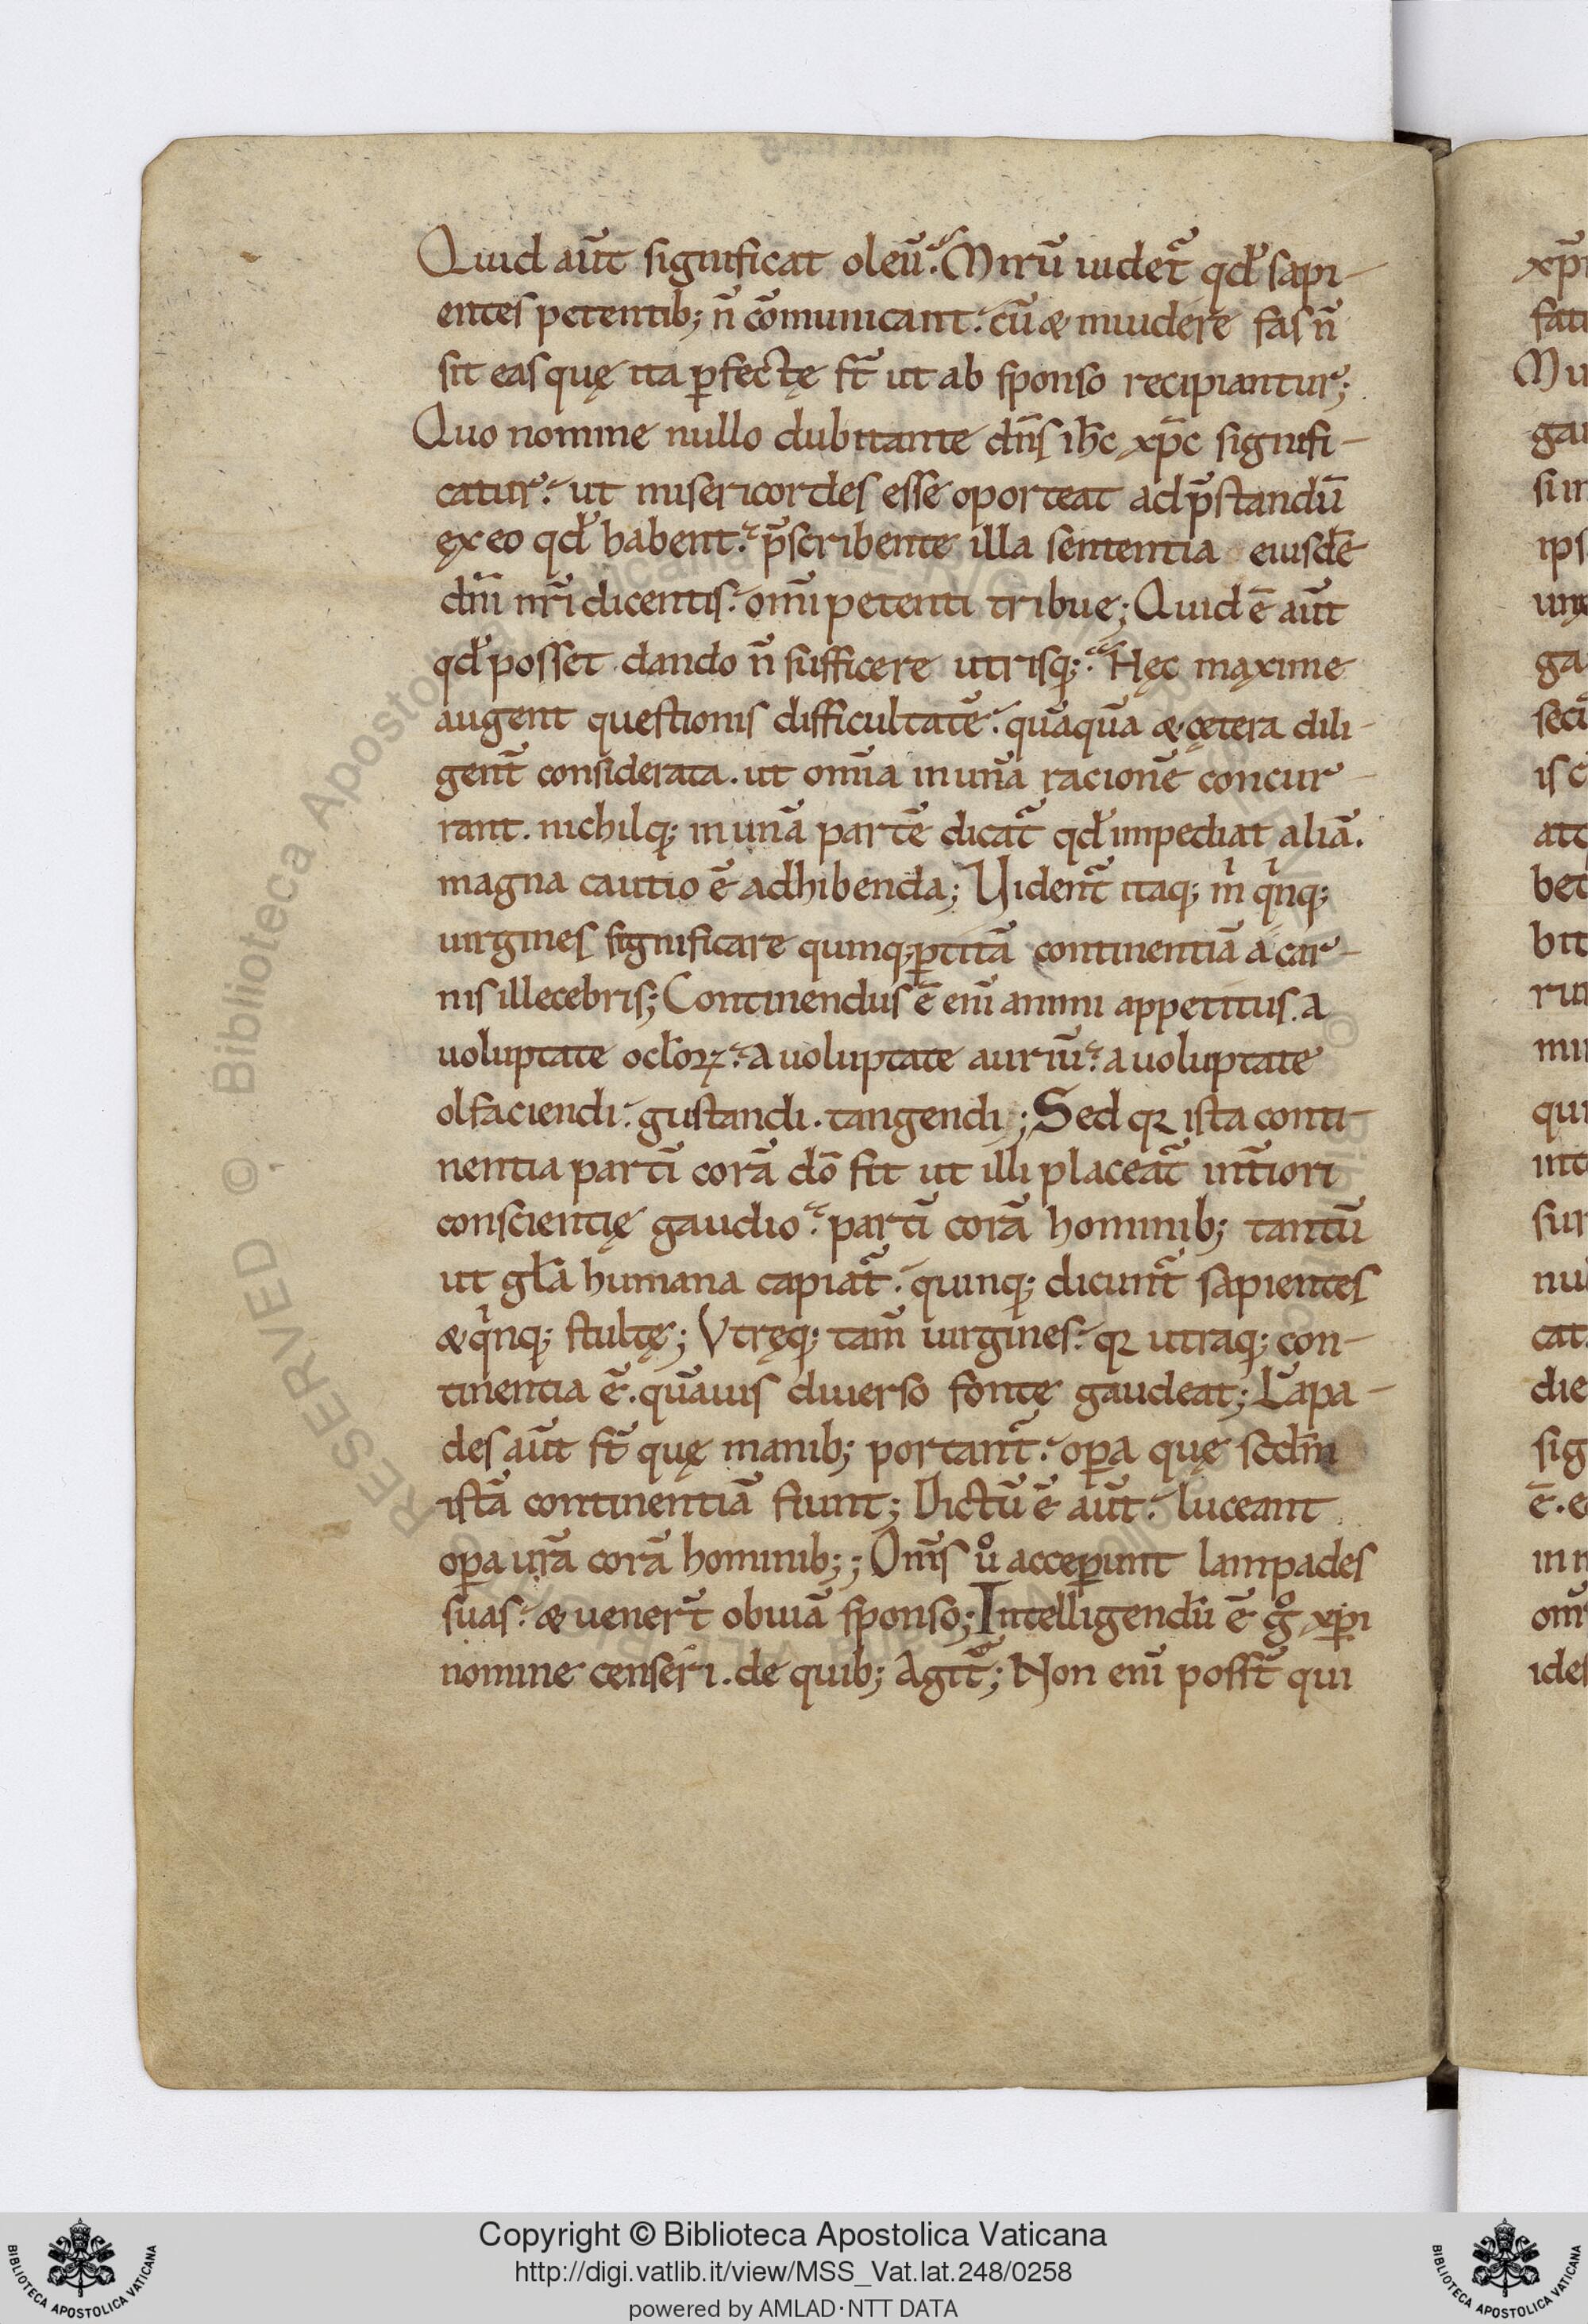 Quid aut̄ significat oleū. Mirū uidet̄ qd̄ sapi-
entes petentib; n̄ cōmunicant. cū & inuidere fas n̄
sit eas quę ita ꝑfectę st̄ ut ab sponso recipiantur;
Quo nomine nullo dubitante dn̄s ih̄c xp̄c signifi-
catur. ut misericordes esse oporteat ad p̄standū
ęx eo qd̄ habent. p̄scribente illa sententia eiusdē
dn̄i nr̄i dicentis. omī petenti tribue; Quid ē aūt
qd̄ posset dando n̄ sufficere utrisq;. Hęc maxime
augent questionis difficultatē. quāquā & cętera dili-
gent̄ considerata. ut omīa in unā racionē concur-
rant. nichilq; in unā partē dicat̄ qd̄ impediat aliā.
magna cautio ē adhibenda; Uident̄ itaq; m̍ qͥnq;
uirgines significare quinq;ꝑtitā continentiā a car-
nis illecebris; Continendus ē enī animi appetitus. a
uoluptate ocl̄oꝝ. a uoluptate auriū. a uoluptate
olfaciendi. gustandi. tangendi; Sed qꝛ ista conti-
nentia partī corā dō fit ut illi placeat̄ int̄iori
conscientię gaudio. partī corā hominib; tantū
ut gl̄a humana capiat̄. quinq; dicunt̄ sapientes
& qͥnq; stultę; Vtręq; tam̄ uirgines. qꝛ utraq; con-
tinentia ē. quāuis diuerso fonte gaudeat; Lāpa-
des aūt st̄ quę manib; portant̄. oꝑa quę scdm̄
istā continentiā fiunt; Dictū ē aūt. luceant
oꝑa ur̄a corā hominib;; Om̄s uͦ acceꝑunt lampades
suas. & uenert̄ obuiā sponso; Intelligendū ē gͦ xp̄i
nomine censeri. de quib; agit̄; Non enī posst̄ qui
RESERVED © Biblioteca Apostolica
Copyright © Biblioteca Apostolica Vaticana
http://digi.vatlib.it/view/MSS_Vat.lat.248/0258
powered by AMLAD·NTT DATA
BIBLIOTECA APOSTOLICA VATICANA
BIBLIOTECA APOSTOLICA VATICANA